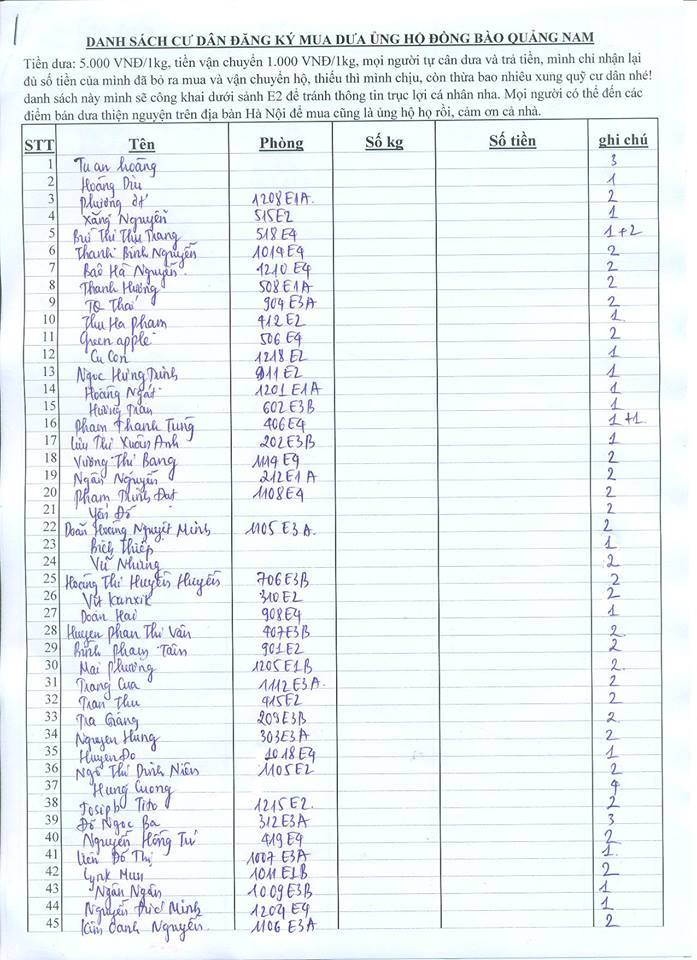 1
DANH SÁCH CƯ DÂN ĐĂNG KÝ MUA DƯA ỦNG HỘ ĐỒNG BÀO QUẢNG NAM
Tiền dưa: 5.000 VNĐ/1kg, tiền vận chuyển 1.000 VNĐ/1kg, mọi người tự cân dưa và trả tiền, mình chỉ nhận lại
đủ số tiền của mình đã bỏ ra mua và vận chuyển hộ, thiếu thì mình chịu, còn thừa bao nhiêu xung quỹ cư dân nhé!
danh sách này mình sẽ công khai dưới sảnh E2 để tránh thông tin trục lợi cá nhân nha. Mọi người có thể đến các
điểm bán dưa thiện nguyện trên địa bàn Hà Nội để mua cũng là ủng hộ họ rồi, cảm ơn cả nhà.
STT Tên Phòng Số kg Số tiền ghi chú
1 Tuan hoàng 3
2 Hoàng Dịu 1
3 Phương 1208E1A 2
4 Xăng Nguyễn 515E2 1
5 Bùi Thị Thu Trang 518E4 1+2
6 Thanh Bình Nguyễn 1014E4 2
7 Bảo Hà Nguyễn 1210E4 2
8 Thanh Hương 508E1A 2
9 TQ Thái 904E3A 2
10 Thu Ha Pham 412E2 1
11 Green apple 506E4 2
12 Cu Con 1218E2 1
13 Ngọc Hưng Trịnh 911E2 1
14 Hoàng Ngát 1201E1A 1
15 Hương Trần 602E3B 1
16 Phạm Thanh Tùng 406E4 1+1
17 Lưu Thị Xuân Anh 202E3B 1
18 Vương Thị Bang 1114E4 2
19 Ngân Nguyễn 212E1A 2
20 Phạm Đạt 1108E4 2
21 Yến Đỗ 2
22 Doãn Hoàng Nguyệt Minh 1105E3A 2
23 Bích Thiếp 1
24 Vũ Nhung 2
25 Hoàng Thị Huyền Huyền 706E3B 2
26 Vịt Kanxik 310E2 2
27 Doãn Hai 908E4 1
28 Huyen Phan Thi Vân 407E3B 2
29 Bình Pham Tâm 901E2 2
30 Mai Phương 1205E1B 2
31 Trang Cua 1112E3A 2
32 Tran Thu 915E2 2
33 Trà Giang 209E3B 2
34 Nguyen Hung 303E3A 2
35 Huyen Do 1018E4 1
36 Ngô Thị Niên 1105E2 2
37 Hung Cuong 4
38 Josiph Tito 1215E2 2
39 Đỗ Ngọc Ba 312E3A 3
40 Nguyễn Hồng Tư 419E4 2
41 Liên Đỗ Thị 1007E3A 1
42 Lynk Mun 1011E1B 2
43 Ngân Ngân 1009E3B 1
44 Nguyễn Đức Minh 1204E4 1
45 Kim Oanh Nguyễn 1106E3A 2